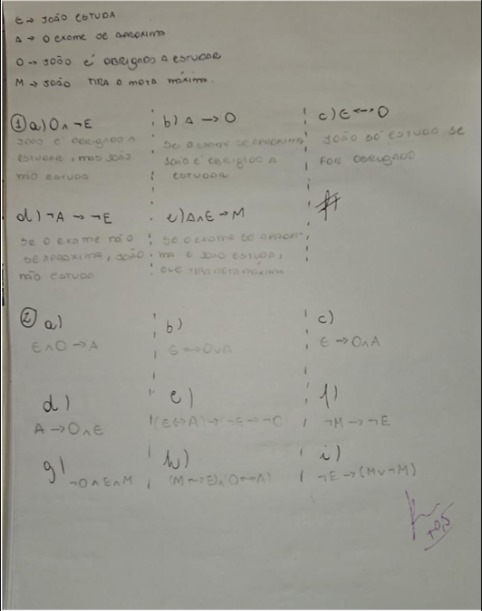 E → JOÃO ESTUDA
A → O EXAME SE APROXIMA
O → JOÃO É OBRIGADO A ESTUDAR
M → JOÃO TIRA A NOTA MÁXIMA.
① a) O ∧ ¬E
JOÃO É OBRIGADO A
ESTUDAR, MAS JOÃO
NÃO ESTUDA
b) A → O
SE O EXAME SE APROXIMA
JOÃO É OBRIGADO A
ESTUDAR
c) E ↔ O
JOÃO SÓ ESTUDA SE
FOR OBRIGADO
d) ¬A → ¬E
SE O EXAME NÃO
SE APROXIMA, JOÃO
NÃO ESTUDA
e) A∧E → M
SE O EXAME SE APROXI-
MA E JOÃO ESTUDA,
NOTA MÁXIMA
② a)
E∧O → A
b)
c)
E → O∧A
d)
A → O∧E
e)
f)
¬M → ¬E
g)
¬O∧E∧M
h)
i)
¬E → (M∨¬M)
+0,5